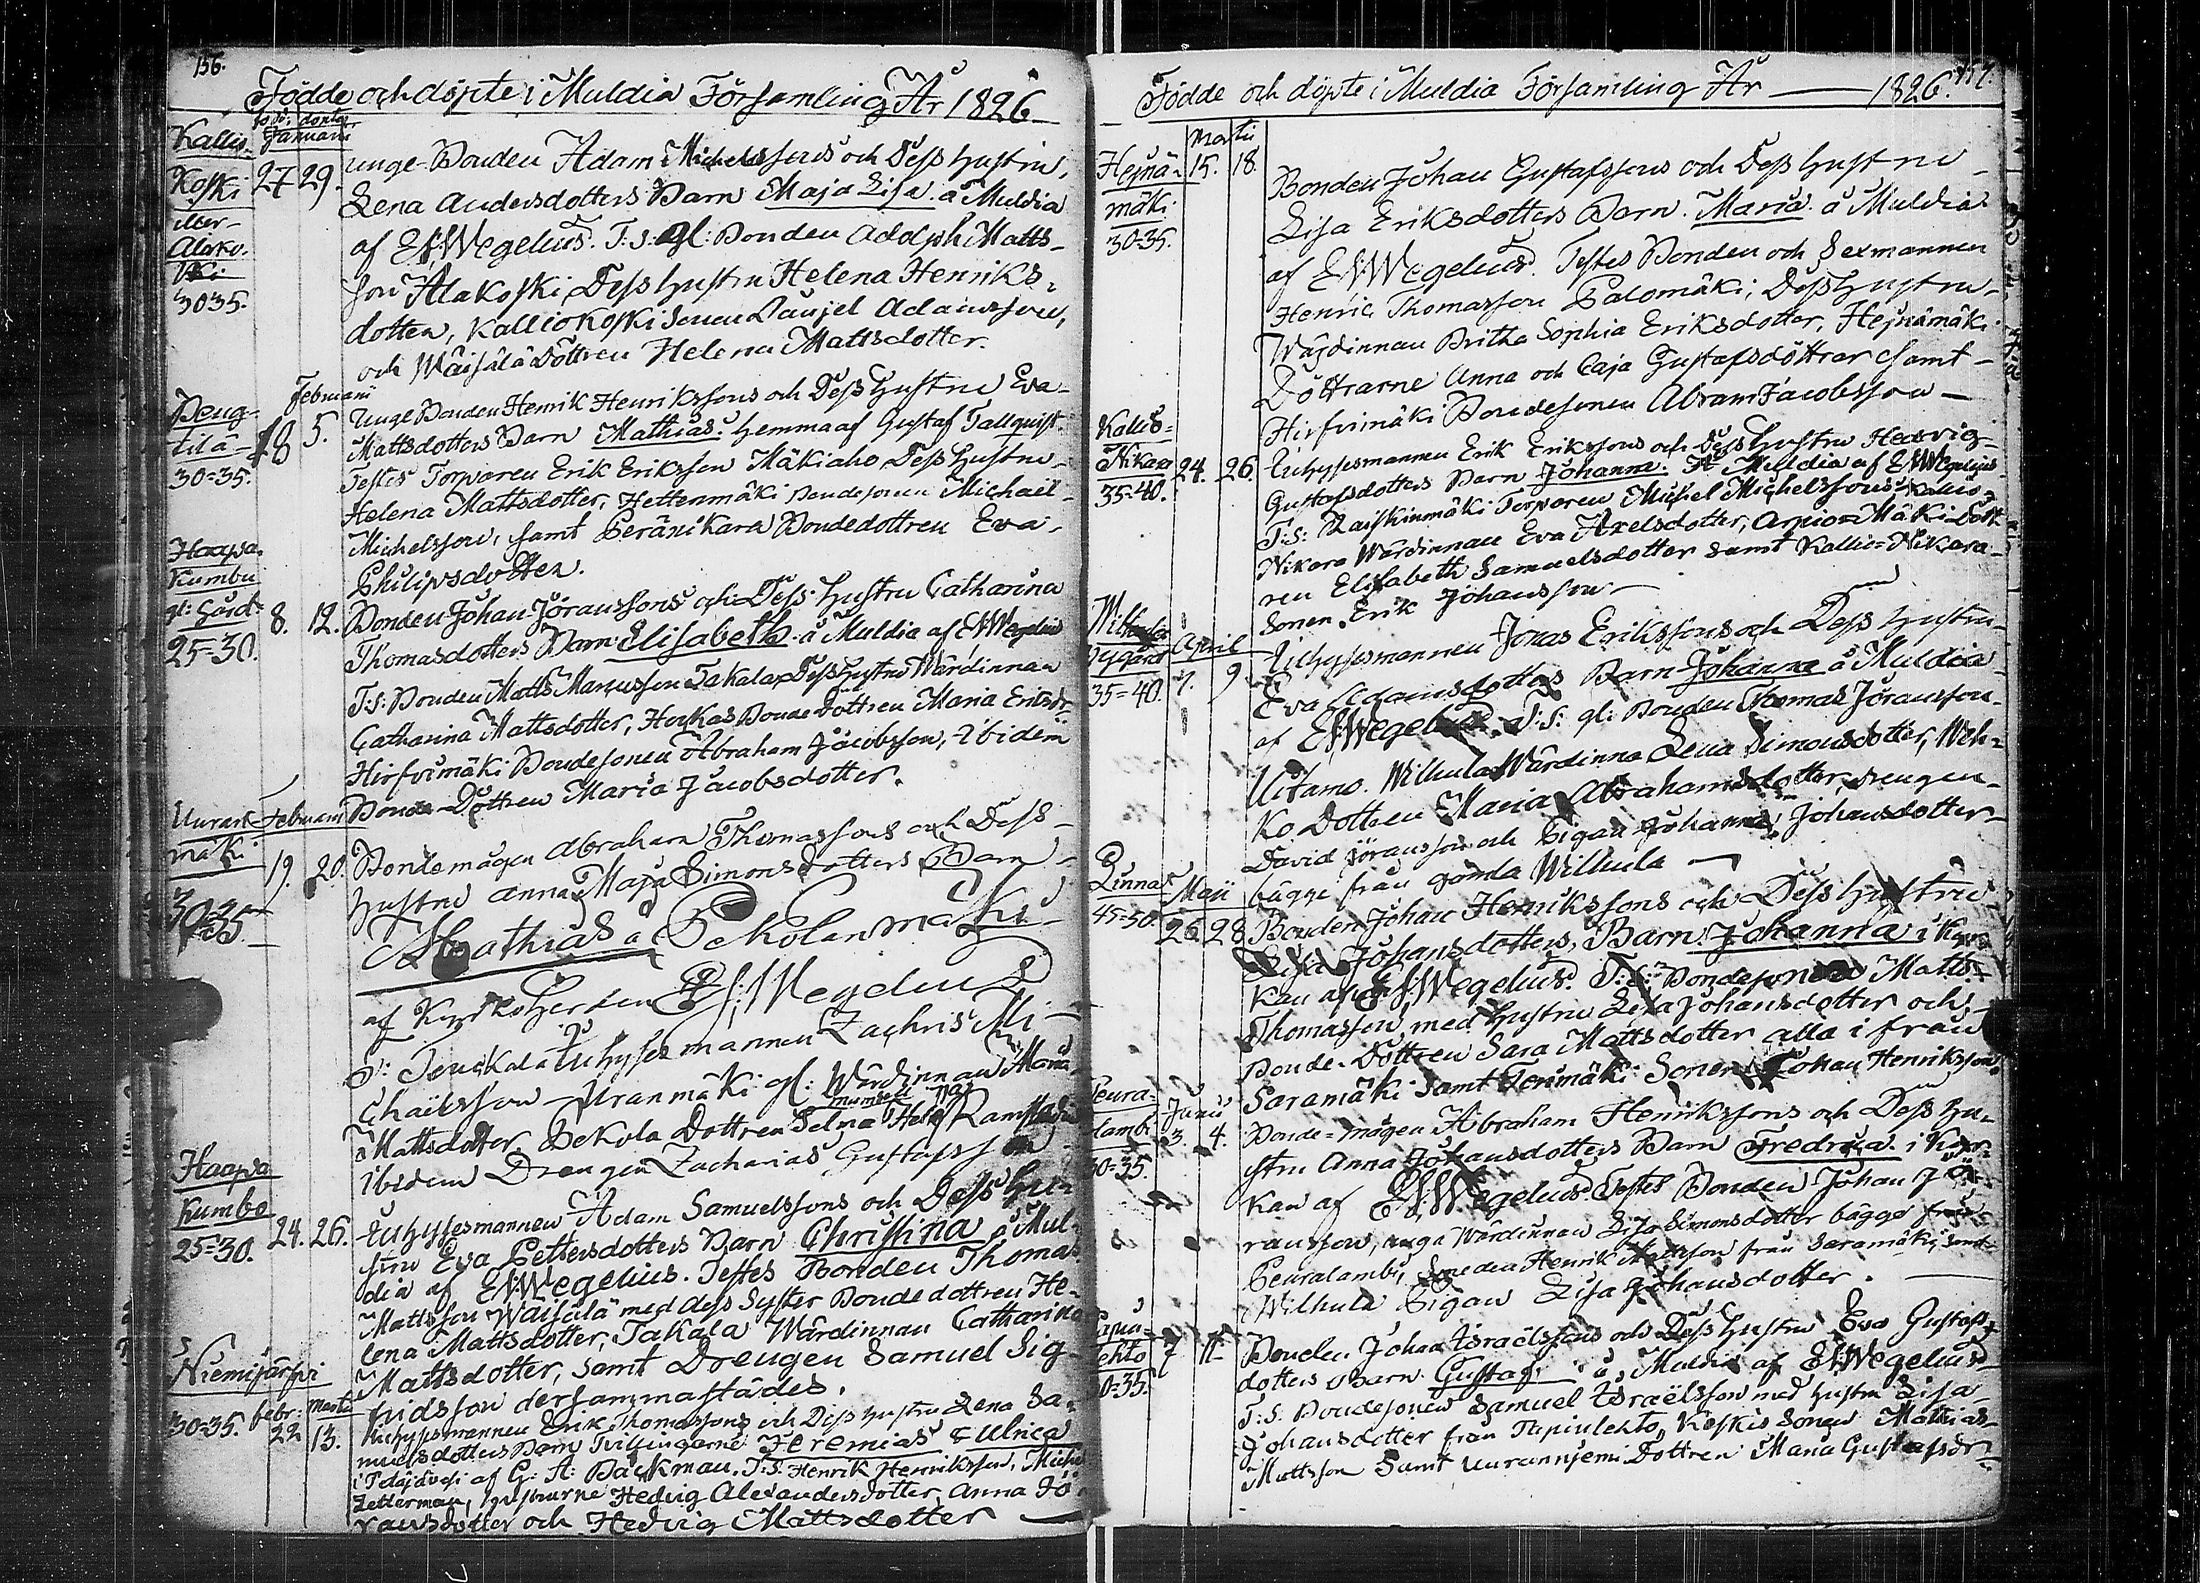 156.
Födde och döpte i Muldia Församling År 1826
födde döpte
Januarii
Kallio-
Koski
eller
Alako-
ski
30-35.
27 29.
unge Bonden Adam Michelssons och Dess hustru,
Lena Andersdotters Barn Maja Lisa. å Muldia
af Wegelius. T: s: gl: Bonden Adolph Matts-
son Alakoski, Dess hustru Helena Henriks-
dotter, Kalliokoski Sonen Danjel Adamsson,
och Wäisälä Dottren Helena Mattsdotter.
Februarii
Peng-
tilä
30-35.
5.
Unge Bonden Henrik Henrikssons och Dess Hustru Eva
Mattsdotters Barn Mathias. hemma af Gustaf Tallquist.
Testes Torparen Erik Eriksson Mäkiaho, Dess Hustru
Helena Mattsdotter, Hettenmäki Bondesonen Michaël
Michelsson, samt Peränikara Bondedottren Eva
Philipsdotter.
Haapa-
Kumbu
gl: Gård:
25=30.
8. 12.
Bonden Johan Jöranssons och Dess Hustru Catharina
Thomasdotters Barn Elisabeth. å Muldia af Wegelius
T: S: Bonden Matts Marcusson Takala, Dess Hustru Wärdinnan
Catharina Mattsdotter, Horkas Bonde dottren Maria Eriksdr.
Hirfvimäki Bondesonen Abraham Jacobsson, ibidem
Bonde Dottren Maria Jacobsdotter.
Februarii
mäki
30-35
19. 20.
Bondemågen Abraham Thomassons och Dess
hustru Anna Maja Simonsdotters Barn
Mathias å Pekolanmäki
af Kyrkoherden Wegelius
T: Tenkala Inhysesmannen Zachris Mi-
chaëlsson Uranmäki gl: Wärdinnan Maria
Mattsdotter Pekola Dottren Selma
ibidem Drengen Zacharias Gustafsson
Haapa
Kumbo
25=30.
24. 26.
Inhysesmannen Adam Samuelssons och Dess Hu-
stru Eva Pettersdotters Barn Christina å Mul-
dia af Wegelius. Testes Bonden Thomas
Mattsson Waisälä med dess Syster Bondedottren He-
lena Mattsdotter, Takala Wärdinnan Catharina
Mattsdotter, samt Drengen Samuel Sig-
fridsson dersammastädes.
Niemijärfvi
30=35.
febr:
22
Martii
13.
Inhysesmannen Erik Thomassons och Dess Hustru Lena Sa-
muelsdotters Barn Tvillingarne Jeremias & Ulrica
af G: A: Backman. T: S: Henrik Henriksson, Michel
Zetterman, hustrurne Hedvig Alexandersdotter, Anna Jö-
ransdotter och Hedvig Mattsdotter
157.
Födde och döpte i Muldia Församling År 1826.
Martii
Hejnä-
mäki
30-35.
15. 18.
Bonden Johan Gustafssons och Dess hustru
Lisa Eriksdotters Barn. Maria. å Muldia
af Wegelius. Testes Bonden och Sexmannen
Henric Thomasson Palomäki, Dess Hustru
Wärdinnan Britha Sophia Eriksdotter, Hejnämäki
Döttrarne Anna och Caja Gustafsdöttrar samt
Hirfvimäki Bondesonen Abram Jacobsson
Kallio-
Nikara
35=40.
24. 26.
Inhysesmannen Erik Erikssons och Dess Hustru Hedvig
Gustafsdotters Barn Johanna. å Muldia af Wegelius
T: S: Raiskinmäki Torparen Michel Michelsson, Kallio-
Nikara Wärdinnan Eva Axelsdotter, Arpio=Mäki Dott-
ren Elisabeth Samuelsdotter samt Kallio=Nikara
Sonen Erik Johansson
Wilhula
Nygård
35=40.
April
7. 9.
Inhysesmannen Jonas Erikssons och Dess hustru
Eva Adamsdotters Barn Johanna å Muldia
af Wegelius. T: S: gl: Bonden Thomas Jöransson
Uitamo. Wilhula Wärdinna Lena Simonsdotter, Weh-
ko Dottren Maria Abrahamsdotter, drengen
David Jöransson och Pigan Johanna Johansdotter
bägge från gamla Wilhula
Linna
45=50.
Maji
26 28
Bonden Johan Henrikssons och Dess Hustru
Lisa Johansdotters, Barn. Johanna i Kyr-
kan af Wegelius. T: S: Bondesonen Matts
Thomasson, med hustru Lisa Johansdotter och
Bonde Dottren Sara Mattsdotter alla i från
Saramäki samt Tenimäki Sonen Johan Henriksson
Peura-
lambi
30=35.
Junii
3. 4.
Bonde=mågen Abraham Henrikssons och Dess Hu-
stru Anna Johansdotters Barn Fredrica. i Kyr-
kan af Wegelius. Testes Bonden Johan Jö-
ransson, unga Wärdinnan Lisa Simonsdotter bägge från
Peuralambi, Henrik Mattsson från Saramäki, samt
Wilhula Pigan Lisa Johansdotter.
lehto
30=35.
7 11
Bonden Johan Israëlssons och Dess Hustru Eva Gustafs-
dotters Barn Gustaf. å Muldia af Wegelius
T: S. Bondesonen Samuel Israëlsson med hustru Lisa
Johansdotter från Tapiolehto, Koskis Sonen Mathias
Mattsson Samt Uurannjemi Dottren Maria Gustafsdr.